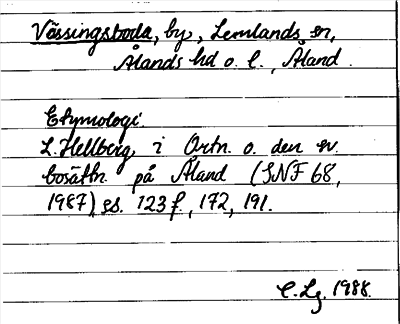 Vässingsboda, by, Lemlands sn,
Ålands hd o. l., Åland.
Etymologi.
L. Hellberg i Ortn. o. den sv.
bosättn. på Åland (SNF 68,
1987), ss. 123 f., 172, 191.
C. Lg. 1988.